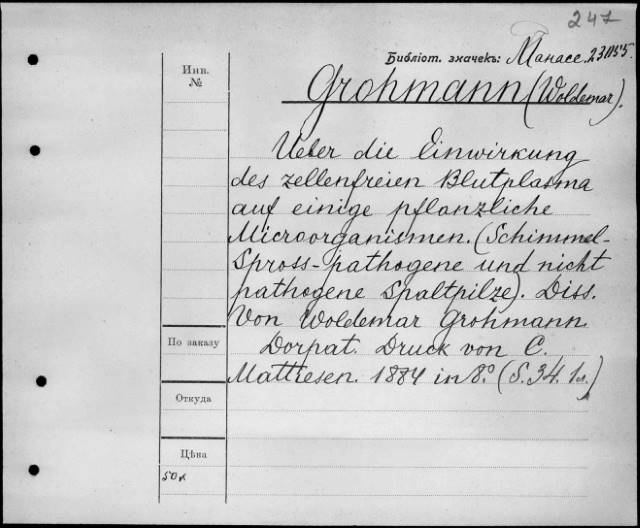 247
Библіот. значекъ: Манасе. 231155.
Инв.
№
Grohmann (Woldemar).
Ueber die Einwirkung
des zellenfreien Blutplasma
auf einige pflanzliche
Microorganismen. (Schimmel-
Spross-pathogene und nicht
pathogene Spaltpilze). Diss.
Von Woldemar Grohmann
По заказу
Dorpat. Druck von C.
Mattiesen. 1884 in 8.° (S. 34. 1 л.)
Откуда
Цѣна
50 к